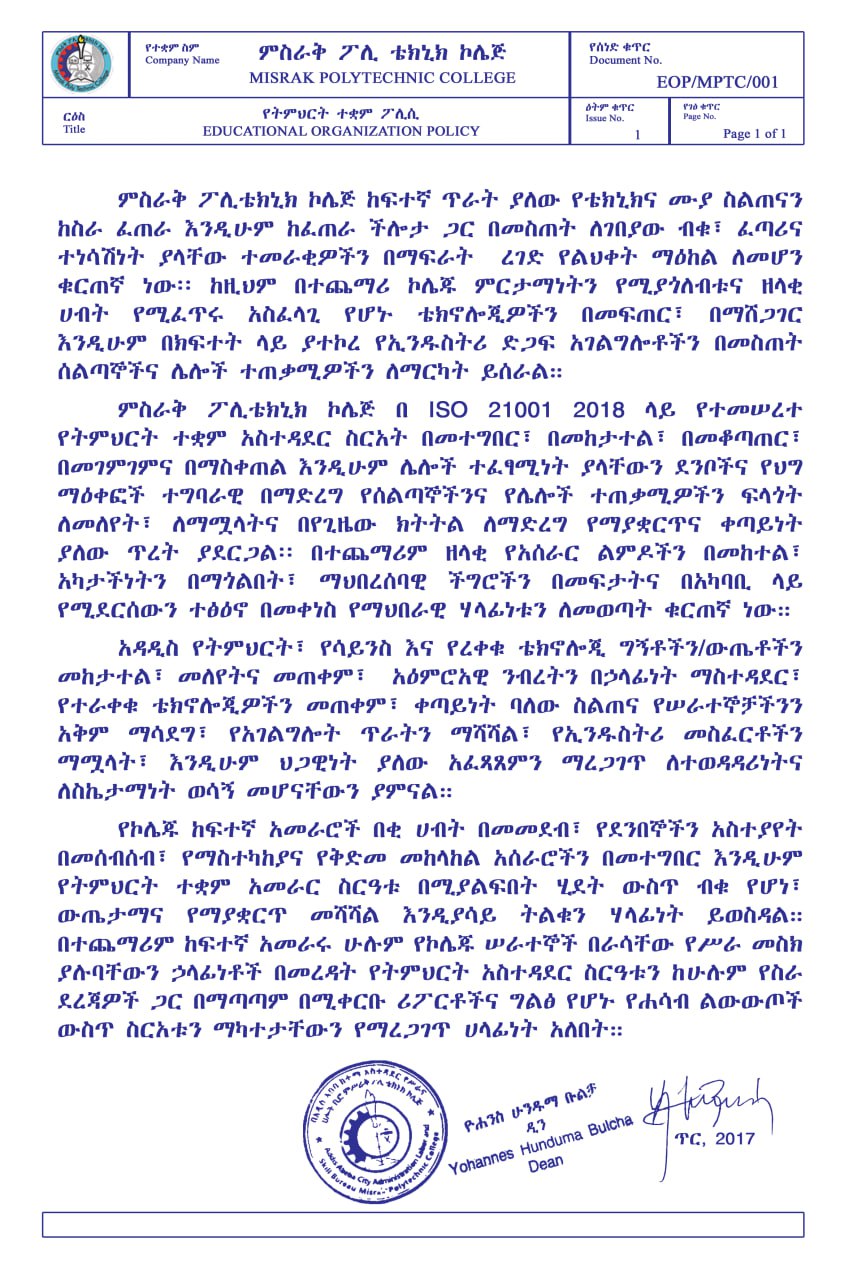 የተቋም ስም
Company Name
ምስራቅ ፖሊ ቴክኒክ ኮሌጅ
MISRAK POLYTECHNIC COLLEGE
የሰነድ ቁጥር
Document No.
EOP/MPTC/001
ርዕስ
Title
የትምህርት ተቋም ፖሊሲ
EDUCATIONAL ORGANIZATION POLICY
ዕትም ቁጥር
Issue No.
1
የገፅ ቁጥር
Page No.
Page 1 of 1
ምስራቅ ፖሊቴክኒክ ኮሌጅ ከፍተኛ ጥራት ያለው የቴክኒክና ሙያ ስልጠናን
ከስራ ፈጠራ እንዲሁም ከፈጠራ ችሎታ ጋር በመስጠት ለገበያው ብቁ፣ ፈጣሪና
ተነሳሽነት ያላቸው ተመራቂዎችን በማፍራት ረገድ የልህቀት ማዕከል ለመሆን
ቁርጠኛ ነው፡፡ ከዚህም በተጨማሪ ኮሌጁ ምርታማነትን የሚያጎለብቱና ዘላቂ
ሀብት የሚፈጥሩ አስፈላጊ የሆኑ ቴክኖሎጂዎችን በመፍጠር፣ በማሸጋገር
እንዲሁም በክፍተት ላይ ያተኮረ የኢንዱስትሪ ድጋፍ አገልግሎቶችን በመስጠት
ሰልጣኞችና ሌሎች ተጠቃሚዎችን ለማርካት ይሰራል፡፡
ምስራቅ ፖሊቴክኒክ ኮሌጅ በ ISO 21001 2018 ላይ የተመሠረተ
የትምህርት ተቋም አስተዳደር ስርአት በመተግበር፣ በመከታተል፣ በመቆጣጠር፣
በመገምገምና በማስቀጠል እንዲሁም ሌሎች ተፈፃሚነት ያላቸውን ደንቦችና የህግ
ማዕቀፎች ተግባራዊ በማድረግ የሰልጣኞችንና የሌሎች ተጠቃሚዎችን ፍላጎት
ለመለየት፣ ለማሟላትና በየጊዜው ክትትል ለማድረግ የማያቋርጥና ቀጣይነት
ያለው ጥረት ያደርጋል፡፡ በተጨማሪም ዘላቂ የአሰራር ልምዶችን በመከተል፣
አካታችነትን በማጎልበት፣ ማህበረሰባዊ ችግሮችን በመፍታትና በአካባቢ ላይ
የሚደርሰውን ተፅዕኖ በመቀነስ የማህበራዊ ሃላፊነቱን ለመወጣት ቁርጠኛ ነው፡፡
አዳዲስ የትምህርት፣ የሳይንስ እና የረቀቁ ቴክኖሎጂ ግኝቶችን/ውጤቶችን
መከታተል፣ መለየትና መጠቀም፣ አዕምሮአዊ ንብረትን በኃላፊነት ማስተዳደር፣
የተራቀቁ ቴክኖሎጂዎችን መጠቀም፣ ቀጣይነት ባለው ስልጠና የሠራተኞቻችንን
አቅም ማሳደግ፣ የአገልግሎት ጥራትን ማሻሻል፣ የኢንዱስትሪ መስፈርቶችን
ማሟላት፣ እንዲሁም ህጋዊነት ያለው አፈጻጸምን ማረጋገጥ ለተወዳዳሪነትና
ለስኬታማነት ወሳኝ መሆናቸውን ያምናል፡፡
የኮሌጁ ከፍተኛ አመራሮች በቂ ሀብት በመመደብ፣ የደንበኞችን አስተያየት
በመሰብሰብ፣ የማስተካከያና የቅድመ መከላከል አሰራሮችን በመተግበር እንዲሁም
የትምህርት ተቋም አመራር ስርዓቱ በሚያልፍበት ሂደት ውስጥ ብቁ የሆነ፣
ውጤታማና የማያቋርጥ መሻሻል እንዲያሳይ ትልቁን ሃላፊነት ይወስዳል፡፡
በተጨማሪም ከፍተኛ አመራሩ ሁሉም የኮሌጁ ሠራተኞች በራሳቸው የሥራ መስክ
ያሉባቸውን ኃላፊነቶች በመረዳት የትምህርት አስተዳደር ስርዓቱን ከሁሉም የስራ
ደረጃዎች ጋር በማጣጣም በሚቀርቡ ሪፖርቶችና ግልፅ የሆኑ የሐሳብ ልውውጦች
ውስጥ ስርአቱን ማካተታቸውን የማረጋገጥ ሀላፊነት አለበት፡፡
Addis Ababa City Administration Labor and
Skill Bureau Misrak Polytechnic College
ዮሐንስ ሁንዱማ ቡልቻ
ዲን
Yohannes Hunduma Bulcha
Dean
ጥር, 2017